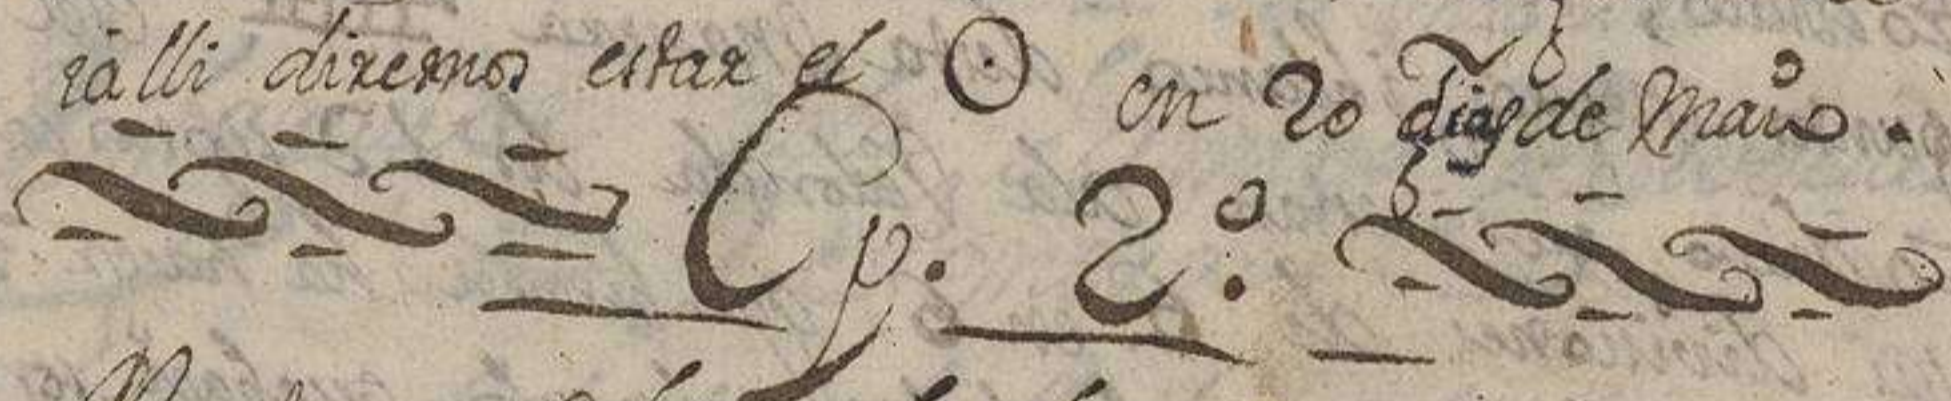 ialli diremos estar el ☉ en 20 dias de Maio.
Cp. 2º.